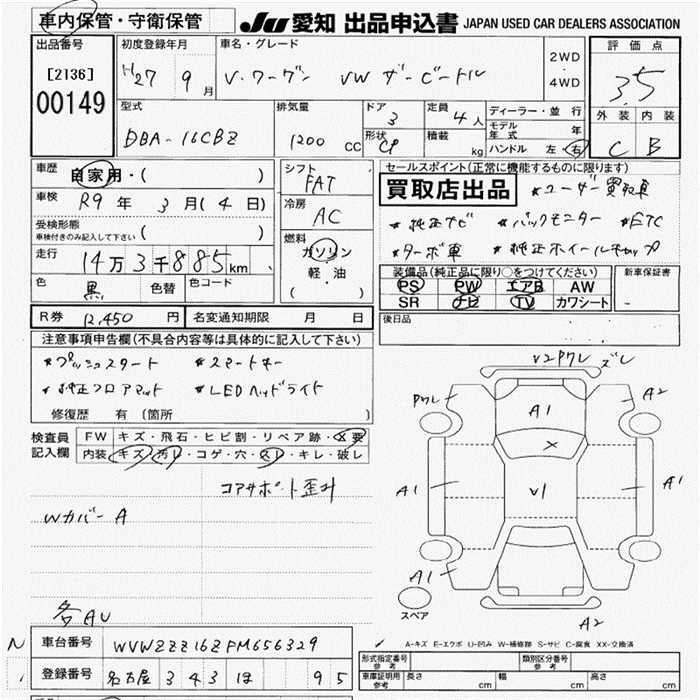 車内保管・守衛保管 JU愛知 出品申込書 JAPAN USED CAR DEALERS ASSOCIATION
出品番号 [2136] 00149
初度登録年月 H27 9月
車名・グレード V.ワーゲン VW ザ・ビートル
2WD
4WD
評価点 3.5
外装 内装
C B
型式 DBA-16CBZ
排気量 1200 CC
ドア 3
形状 CP
定員 4人
積載 kg
ディーラー・並行
モデル年式 年
ハンドル 左・右
車歴 自家用・( )
車検 R9年 3月(4日)
受検形態
車検付きのみ記入して下さい ( )
走行 14万3千885km
色 黒 色替 色コード
シフト FAT
冷房 AC
燃料 ガソリン
軽・油
( )
セールスポイント(正常に機能するものに限ります)
買取店出品 *ユーザー買取車
*純正ナビ *バックモニター *ETC
*ターボ車 *純正ホイールキャップ
装備品(純正品に限り○をつけてください)
PS PW エアB AW
SR ナビ TV カワシート
新車保証書
-
後日品
R券 12,450円 名変通知期限 月 日
注意事項申告欄(不具合内容等は具体的に記入して下さい)
*プッシュスタート *スマートキー
*純正フロアマット *LEDヘッドライト
修復歴 有(箇所 )
検査員記入欄
FW キズ・飛石・ヒビ割・リペア跡・X要
内装 キズ・汚レ・コゲ・穴・スレ・キレ・破レ
コアサポート歪み
Wカバー A
各AU
V2PクレズレI
A1
Pクレ
A2
X
A1
V1
A1
A1
A2
A2
スペア
A-キズ E-エクボ U-凹み W-補修跡 S-サビ C-腐食 XX-交換済
車台番号 WVWZZZ16ZFM656329
登録番号 名古屋 343 ほ 95
形式指定番号 参考 類別区分番号 参考
車庫証明用 参考 長さ cm 幅 cm 高さ cm